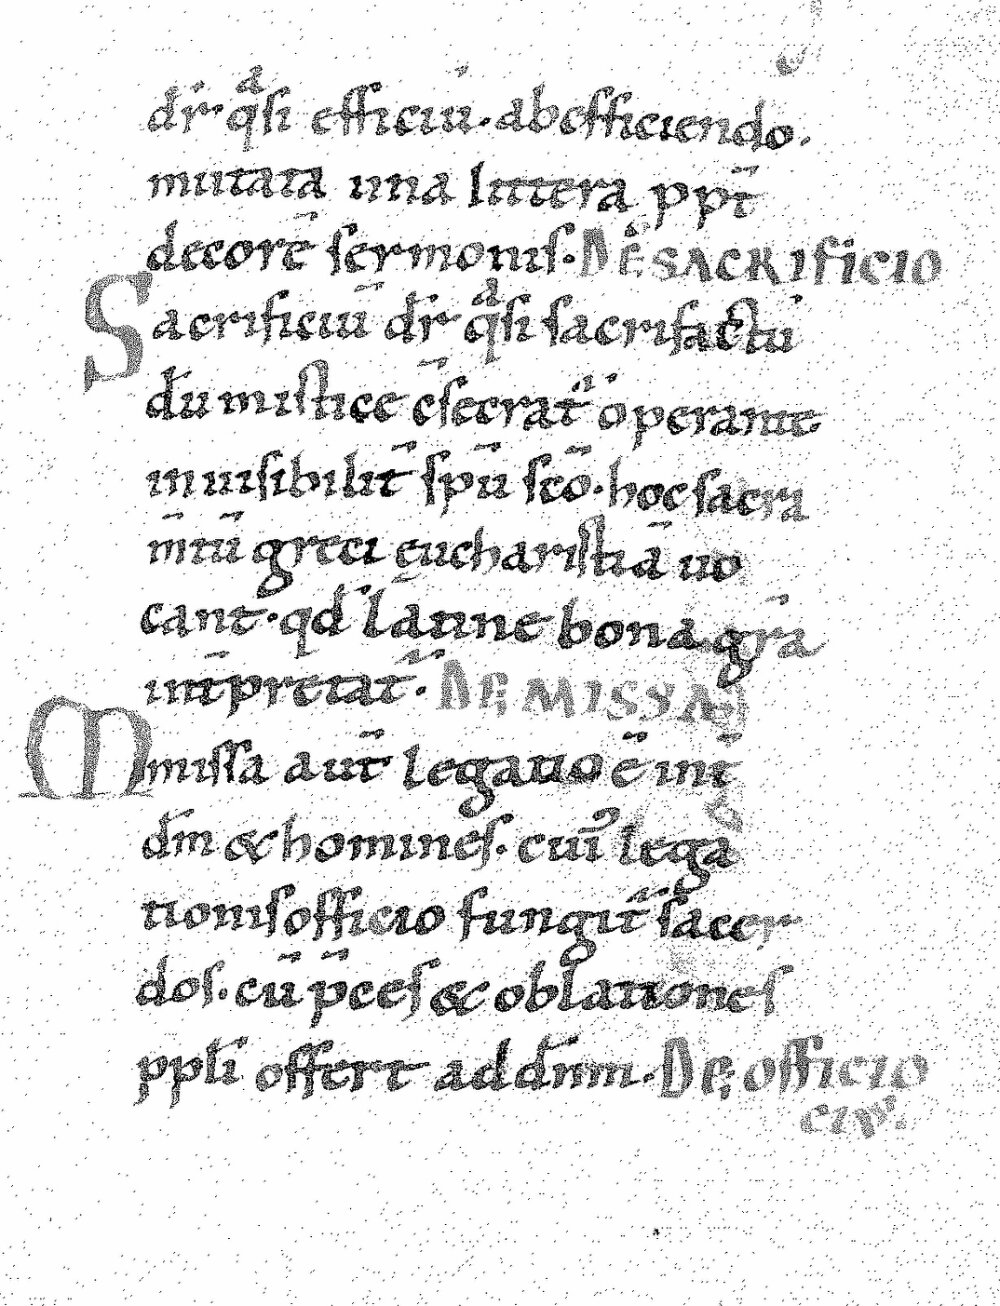 dr̄ qͣsi efficiū. ab efficiendo.
mutata una littera ppt̄
decorē sermonis. DE SACRIFICIO
Sacrificiū dr̄ qͣsi sacrifactū
dū mistice c̄secrat̄ operante
inuisibilit̄ sp̄u sc̄o. hoc sacra
m̄tū greci eucharistiā uo
cant. qd̄ latine bona gr̄a
int̄pretat̄. DE MISSA
Missa aut̄ legatio ē int̄
dm̄ & homines. cuiꝰ lega
tionis officio fungit̄ sacer
dos. cū p̄ces & oblationes
pplī offert ad dn̄m. DE officio